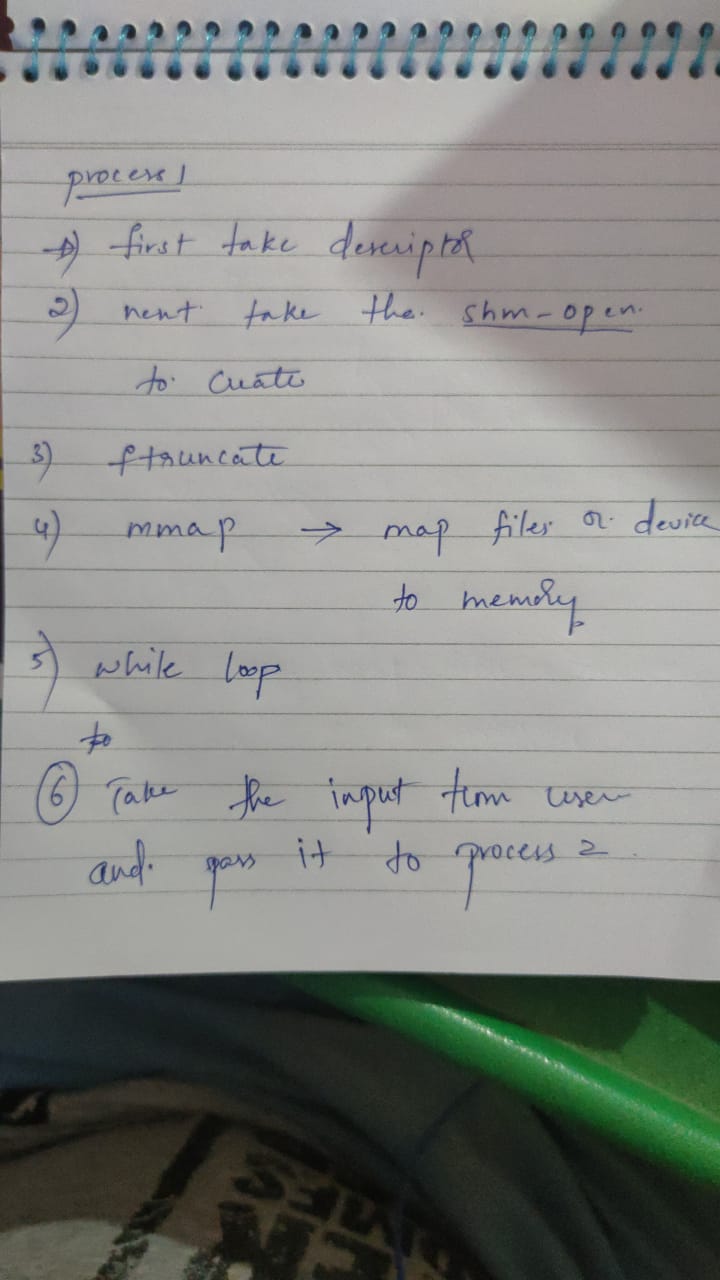 process 1
1) first take descriptor
2) next take the. shm-open.
to create
3) ftruncate
4) mmap → map files or device
to memory
5) while loop
to
6 Take the input from user
and. pass it to process 2.